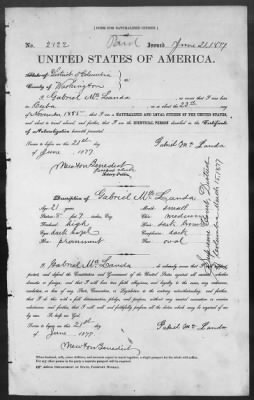 [FORM FOR NATURALIZED CITIZEN.]
No. 2122 Paid Issued June 21, 1877
UNITED STATES OF AMERICA.
State of District of Columbia
County of Washington
I, Gabriel Mc Landa, do swear that I was born
in Cuba on or about the 23rd day
of November 1855; that I am a NATURALIZED AND LOYAL CITIZEN OF THE UNITED STATES,
and about to travel abroad; and further, that I am the IDENTICAL PERSON described in the Certificate
of Naturalization herewith presented.
Sworn to before me this 21st day
of June, 1877
Gabriel Mc Landa
Newton Benedict
Notary Public.
Description of Gabriel Mc Landa
Age: 21 years
Mouth: small
Stature: 5 feet 7 inches, Eng.
Chin: medium
Forehead: high
Hair: dark brown
Eyes: dark hazel
Complexion: dark
Nose: prominent
Face: oval
I, Gabriel Mc Landa, do solemnly swear that I will support,
protect, and defend the Constitution and Government of the United States against all enemies, whether
domestic or foreign; and that I will bear true faith, allegiance, and loyalty to the same, any ordinance,
resolution, or law of any State, Convention, or Legislature to the contrary notwithstanding; and further,
that I do this with a full determination, pledge, and purpose, without any mental reservation or evasion
whatsoever; and further, that I will well and faithfully perform all the duties which may be required of me
by law. So help me God.
Sworn to before me this 21st day
of June 1877
Gabriel Mc Landa
Newton Benedict